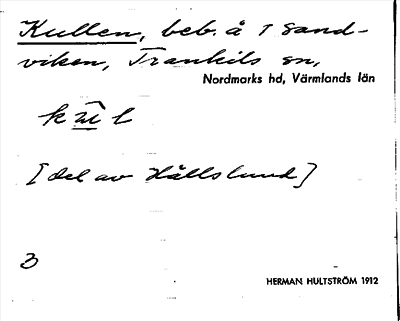 Kullen, beb. å 1 Sand-
viken, Trankils sn,
Nordmarks hd, Värmlands län
kul
[del av Hällslund]
3
HERMAN HULTSTRÖM 1912